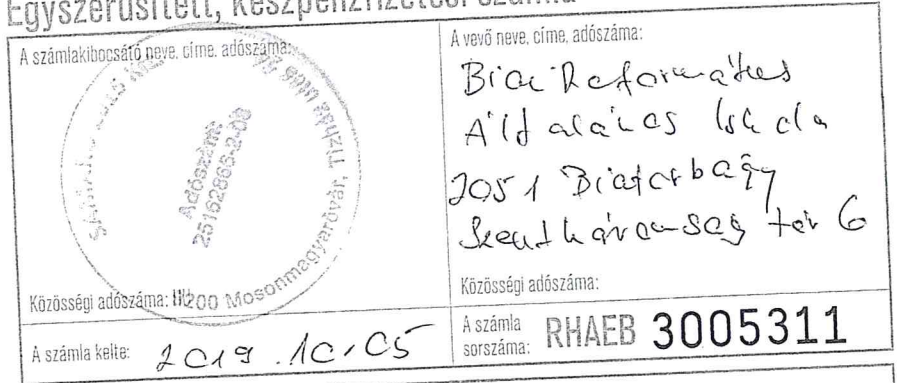 Egyszerűsített, készpénzfizetési számla
A számlakibocsátó neve, címe, adószáma:
Adószám:
25162866-2-08
9200 Mosonmagyaróvár, Tízház utca
Közösségi adószáma:
A számla kelte: 2019.10.05
A vevő neve, címe, adószáma:
Biai Református
Általános Iskola
2051 Biatorbágy
Szentháromság tér 6
Közösségi adószáma:
A számla
sorszáma: RHAEB 3005311